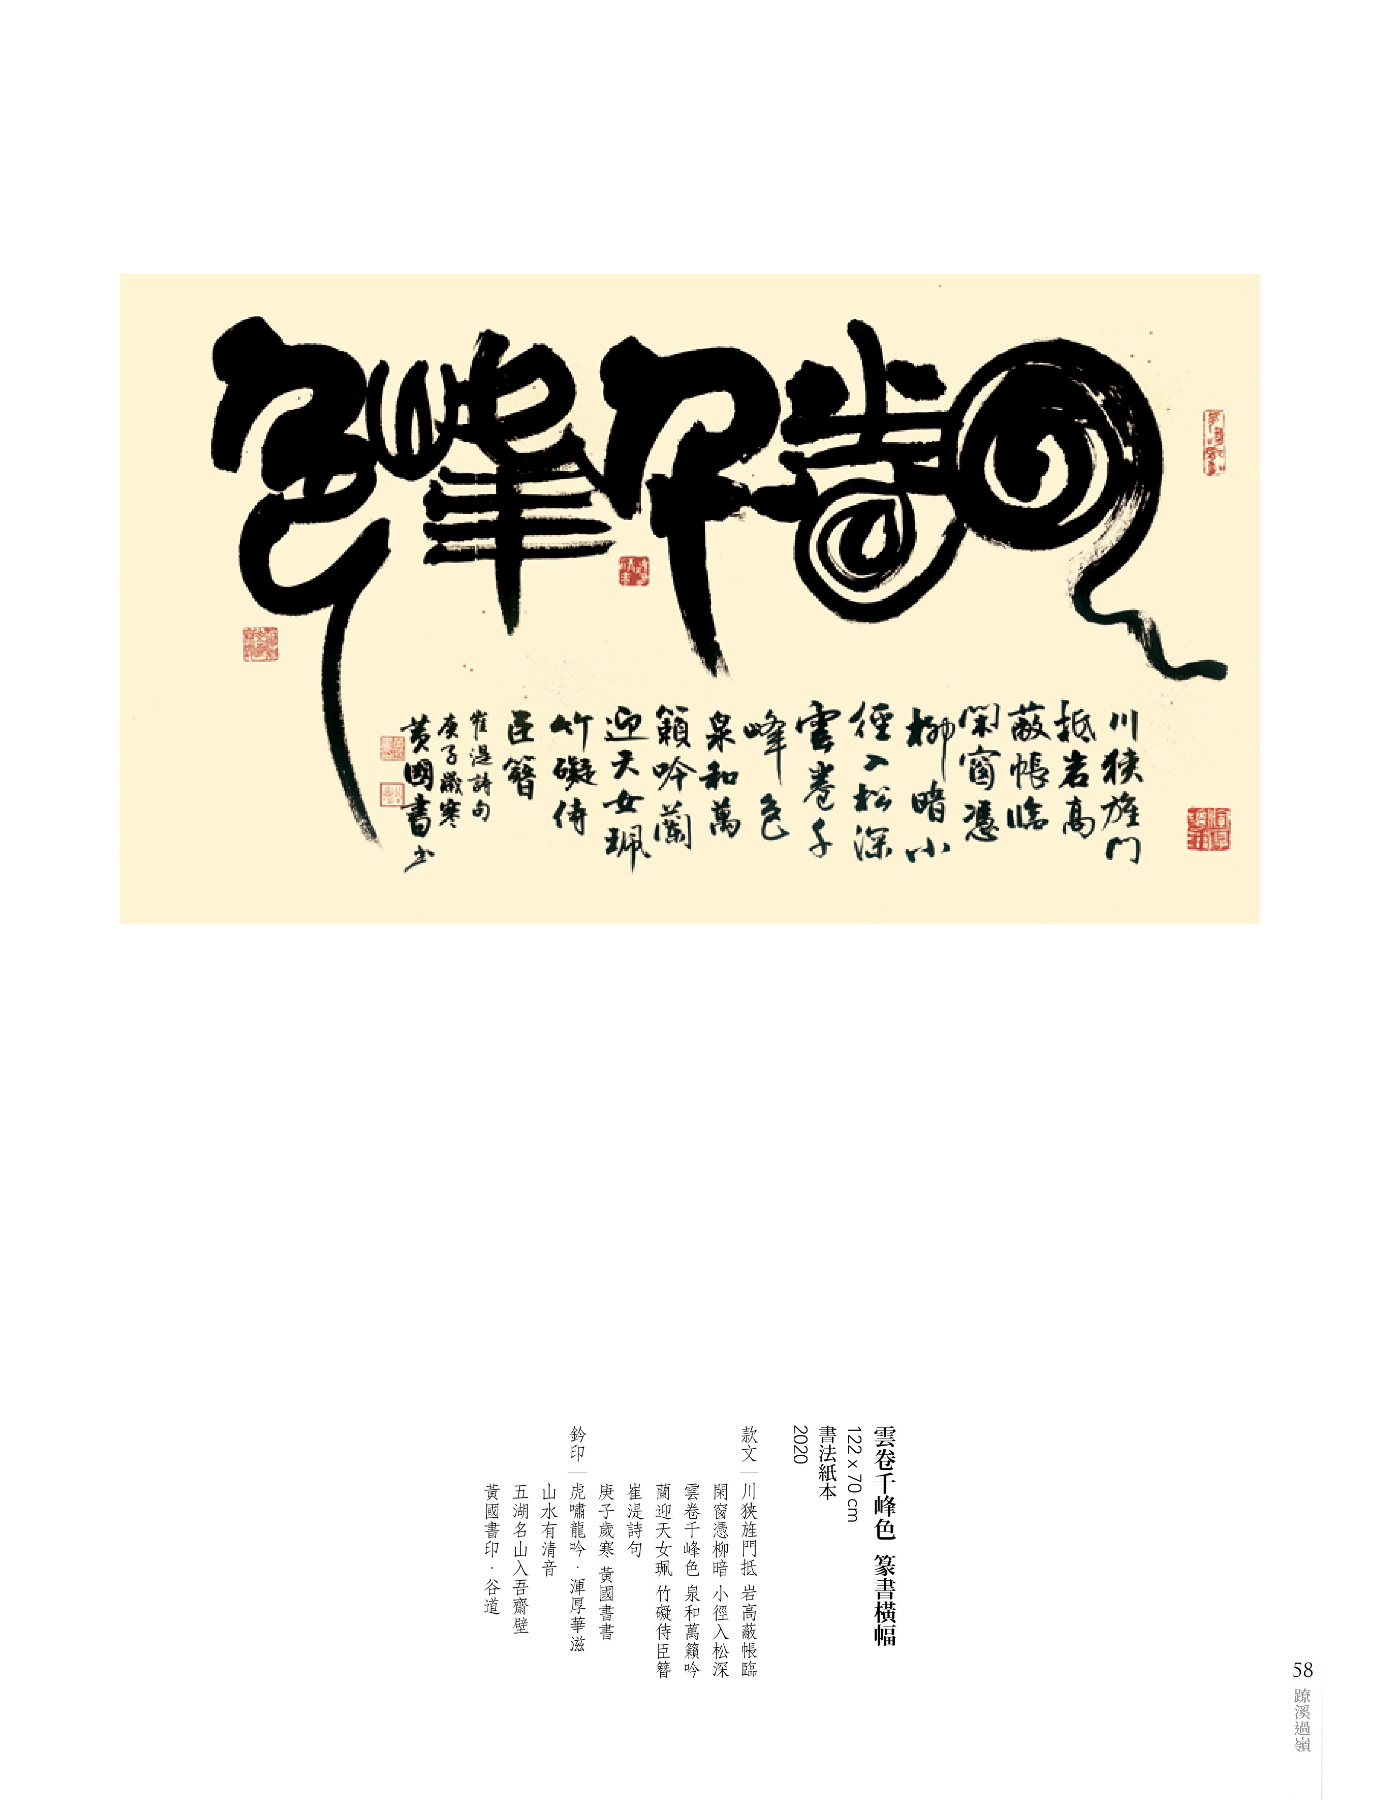 雲卷千峰色
川狹旌門
抵岩高
蔽帳臨
閑窗憑
柳暗小
徑入松深
雲卷千
峰色
泉和萬
籟吟蘭
迎天女珮
竹礙侍
臣簪
崔湜詩句
庚子歲寒
黃國書書
雲卷千峰色 篆書橫幅
122 x 70 cm
書法紙本
2020
款文 川狹旌門抵 岩高蔽帳臨
閑窗憑柳暗 小徑入松深
雲卷千峰色 泉和萬籟吟
蘭迎天女珮 竹礙侍臣簪
崔湜詩句
庚子歲寒 黃國書書
鈐印 虎嘯龍吟·渾厚華滋
山水有清音
五湖名山入吾齋壁
黃國書印·谷道
58
蹽溪過嶺